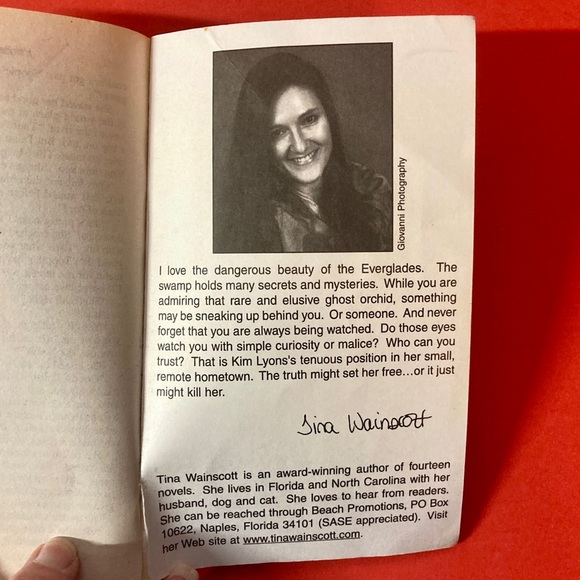 Giovanni Photography
I love the dangerous beauty of the Everglades. The
swamp holds many secrets and mysteries. While you are
admiring that rare and elusive ghost orchid, something
may be sneaking up behind you. Or someone. And never
forget that you are always being watched. Do those eyes
watch you with simple curiosity or malice? Who can you
trust? That is Kim Lyons's tenuous position in her small,
remote hometown. The truth might set her free...or it just
might kill her.
Tina Wainscott
Tina Wainscott is an award-winning author of fourteen
novels. She lives in Florida and North Carolina with her
husband, dog and cat. She loves to hear from readers.
She can be reached through Beach Promotions, PO Box
10622, Naples, Florida 34101 (SASE appreciated). Visit
her Web site at www.tinawainscott.com.